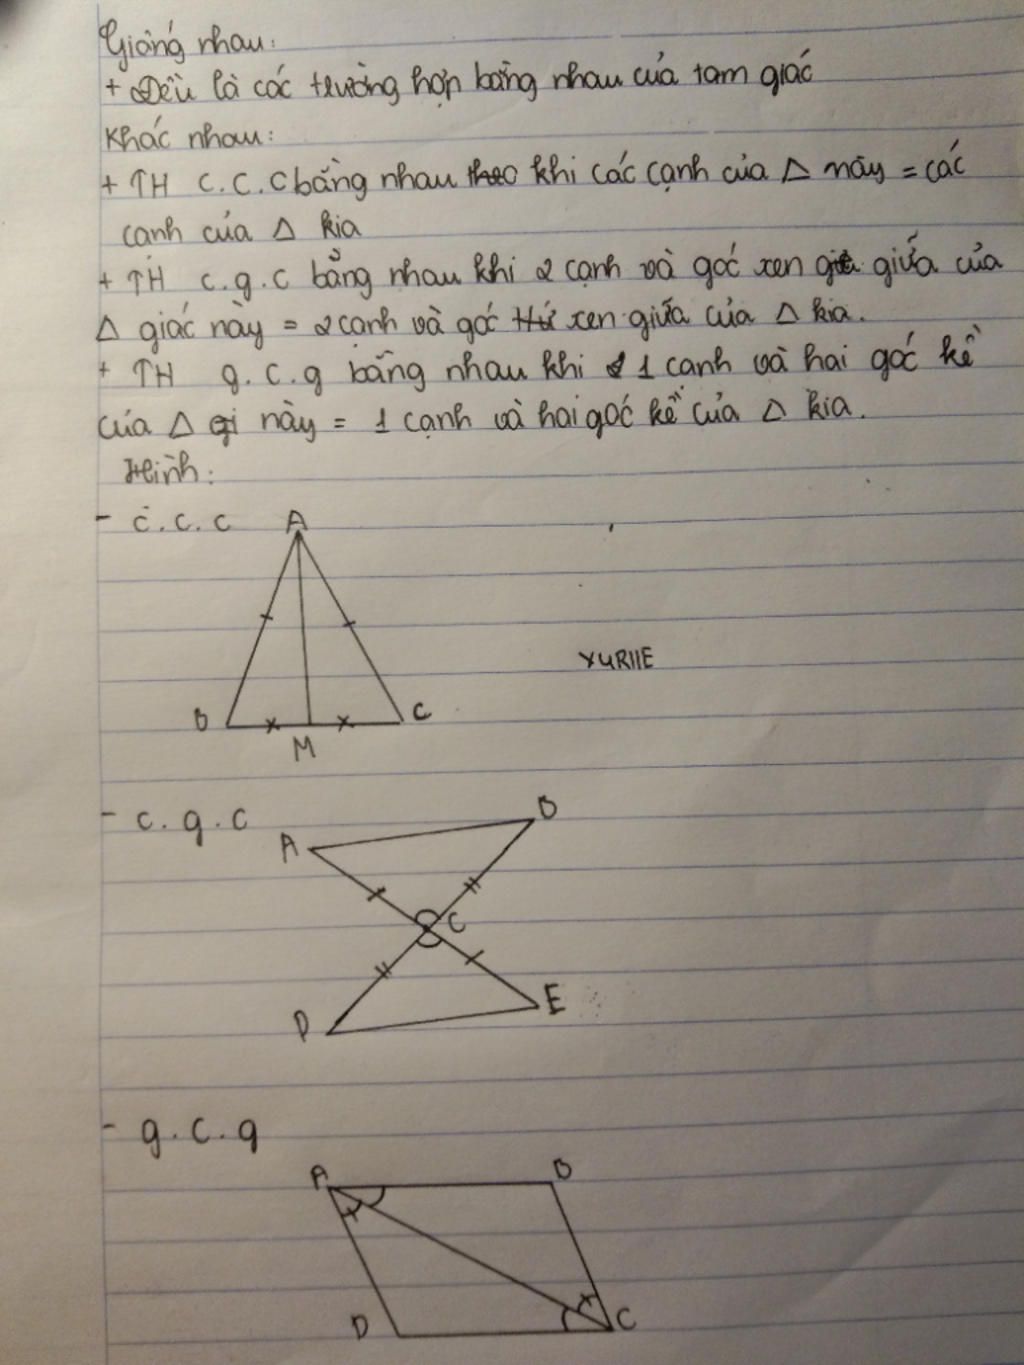 Giống nhau:
+ Đều là các trường hợp bằng nhau của tam giác
Khác nhau:
+ TH c.c.c bằng nhau theo khi các cạnh của Δ này = các
cạnh của Δ kia
+ TH c.g.c bằng nhau khi 2 cạnh và góc xen giữa của
Δ giác này = 2 cạnh và góc xen giữa của Δ kia.
+ TH g.c.g bằng nhau khi 1 cạnh và hai góc kề
của Δ này = 1 cạnh và hai góc kề của Δ kia.
Hình:
- c.c.c A
YURIIE
B C
M
- c.g.c B
A
C
D E
- g.c.g
A B
D C